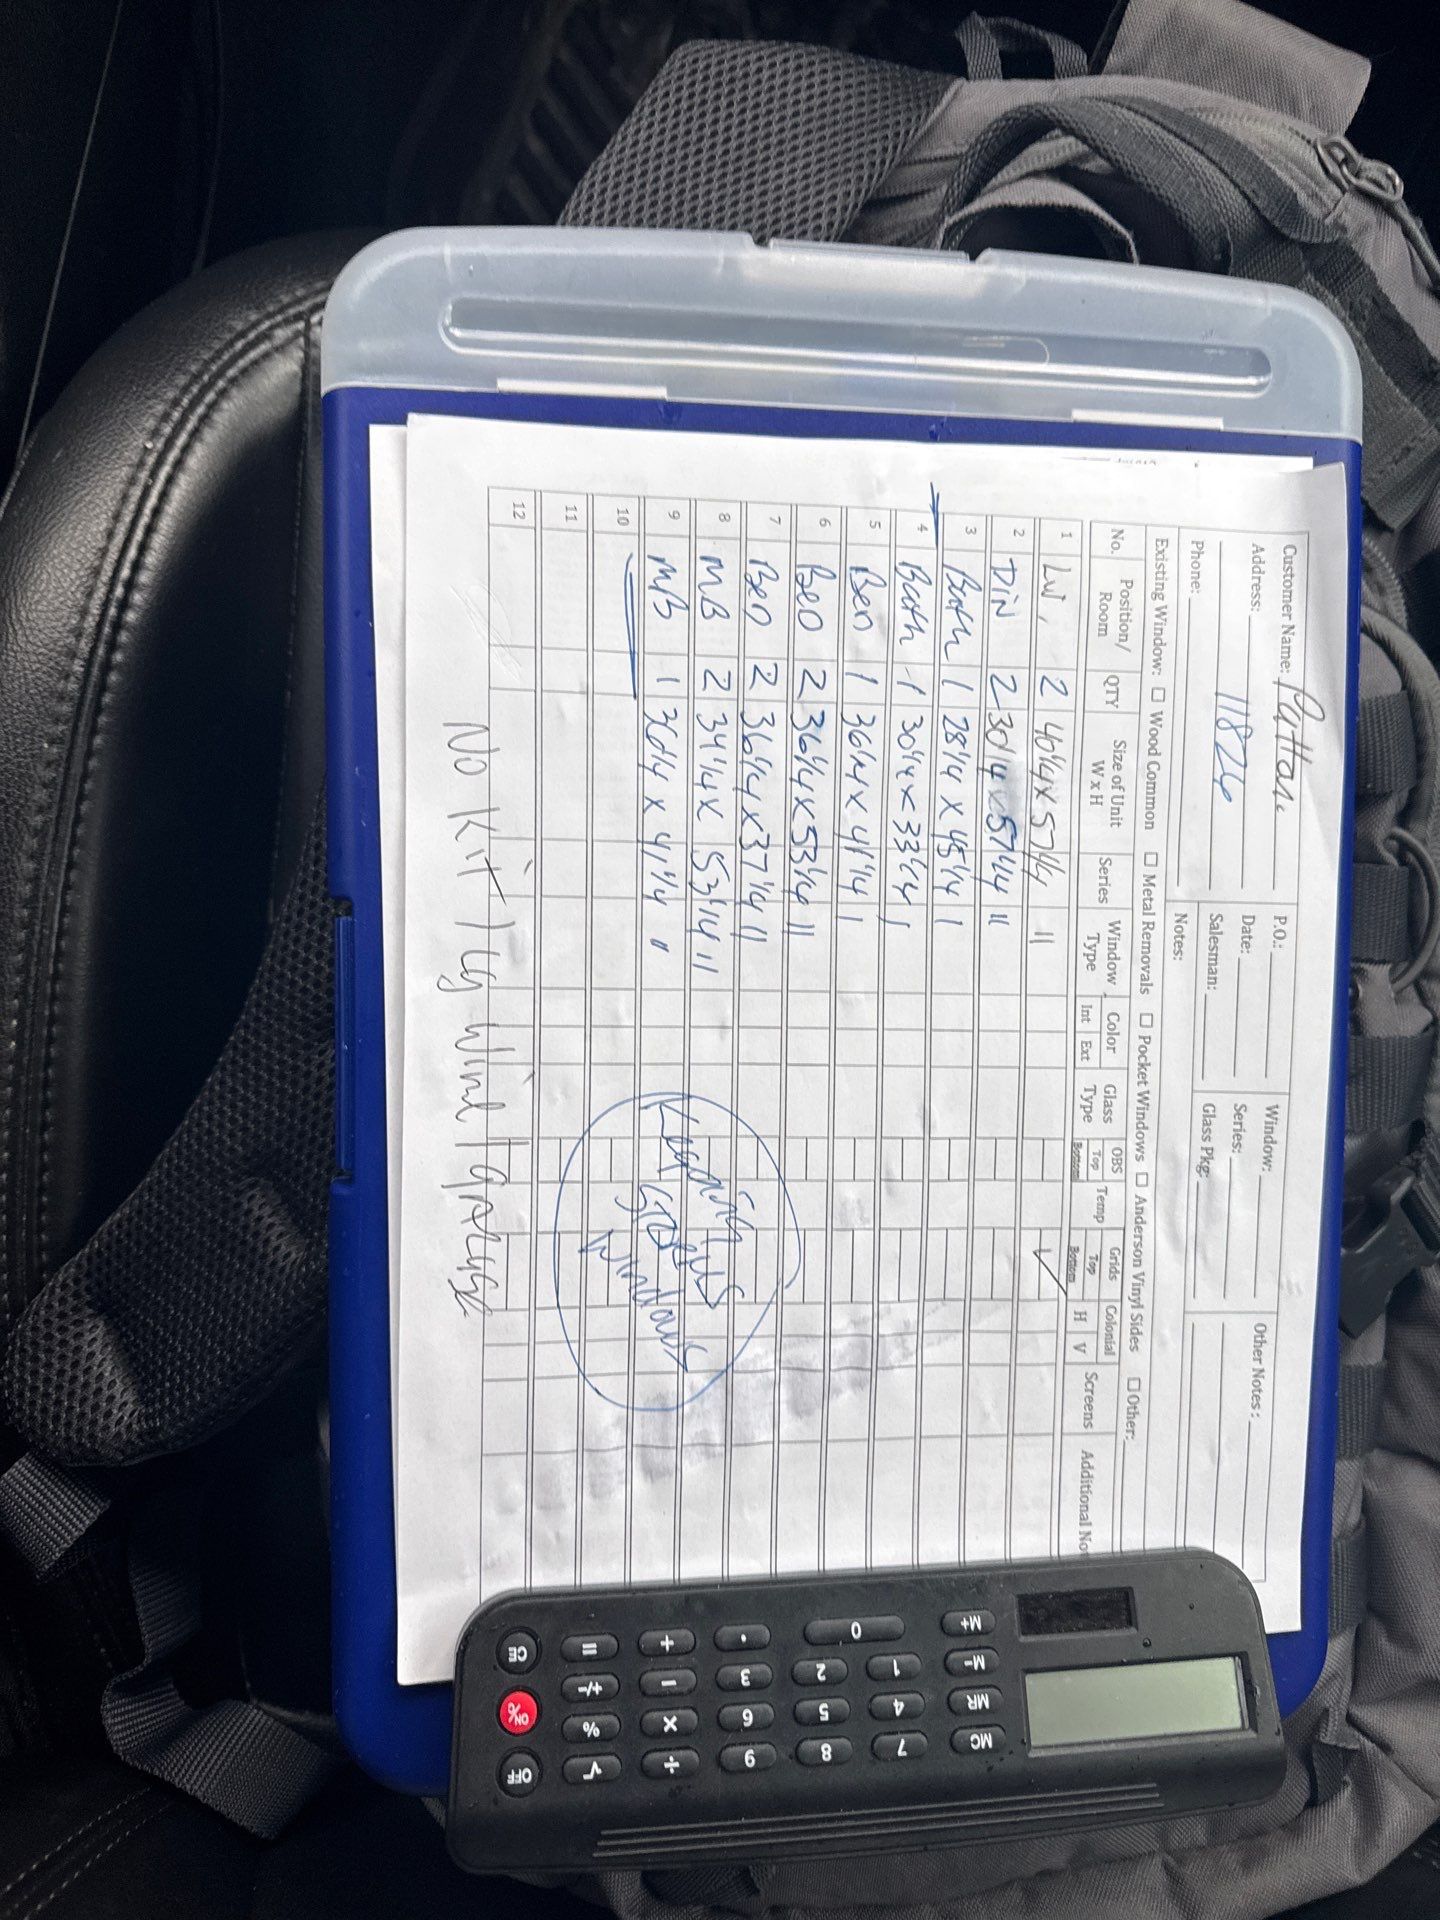 Customer Name:
Address: 11826
Phone:
P.O.:
Date:
Salesman:
Notes:
Window:
Series:
Glass Pkg:
Other Notes:
Existing Window: ☐ Wood Common ☐ Metal Removals ☐ Pocket Windows ☐ Anderson Vinyl Sides ☐ Other:
No. Position/ Room QTY Size of Unit W x H Series Window Type Color Int Ext Glass Type OBS Top Bottom Temp Grids Top Bottom Colonial H V Screens Additional No
1 LW, 2 40 1/4 x 57 1/4 11 ✓
2 DIN 2 30 1/4 x 57 1/4 11
3 Bath 1 28 1/4 x 45 1/4 1
4 Bath 1 30 1/4 x 33 1/4 1
5 Ben 1 36 1/4 x 41 1/4 1
6 Beo 2 36 1/4 x 53 1/4 11
7 Beo 2 36 1/4 x 37 1/4 11
8 MB 2 34 1/4 x 53 1/4 11
9 MB 1 30 1/4 x 41 1/4 "
10
11
12
Windows
No Kit / Lg Wind / garage
M+ M- MR MC
0 1 4 7
2 5 8
. 3 6 9
+ − × ÷
= +/- % √
CE ON/C OFF